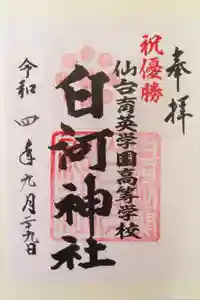 奉拝
祝優勝
仙台育英学園高等学校
白河神社
令和四年九月二十九日